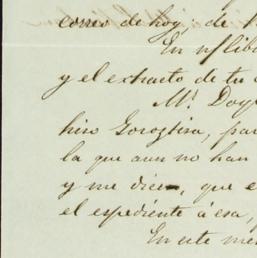 correo de hoy, de
En n/ lib
y el extracto de tu
Mr. Doy
hizo Gorostiza, par
la que aun no han
y me dicen, que e
el espediente á esa,
En este me